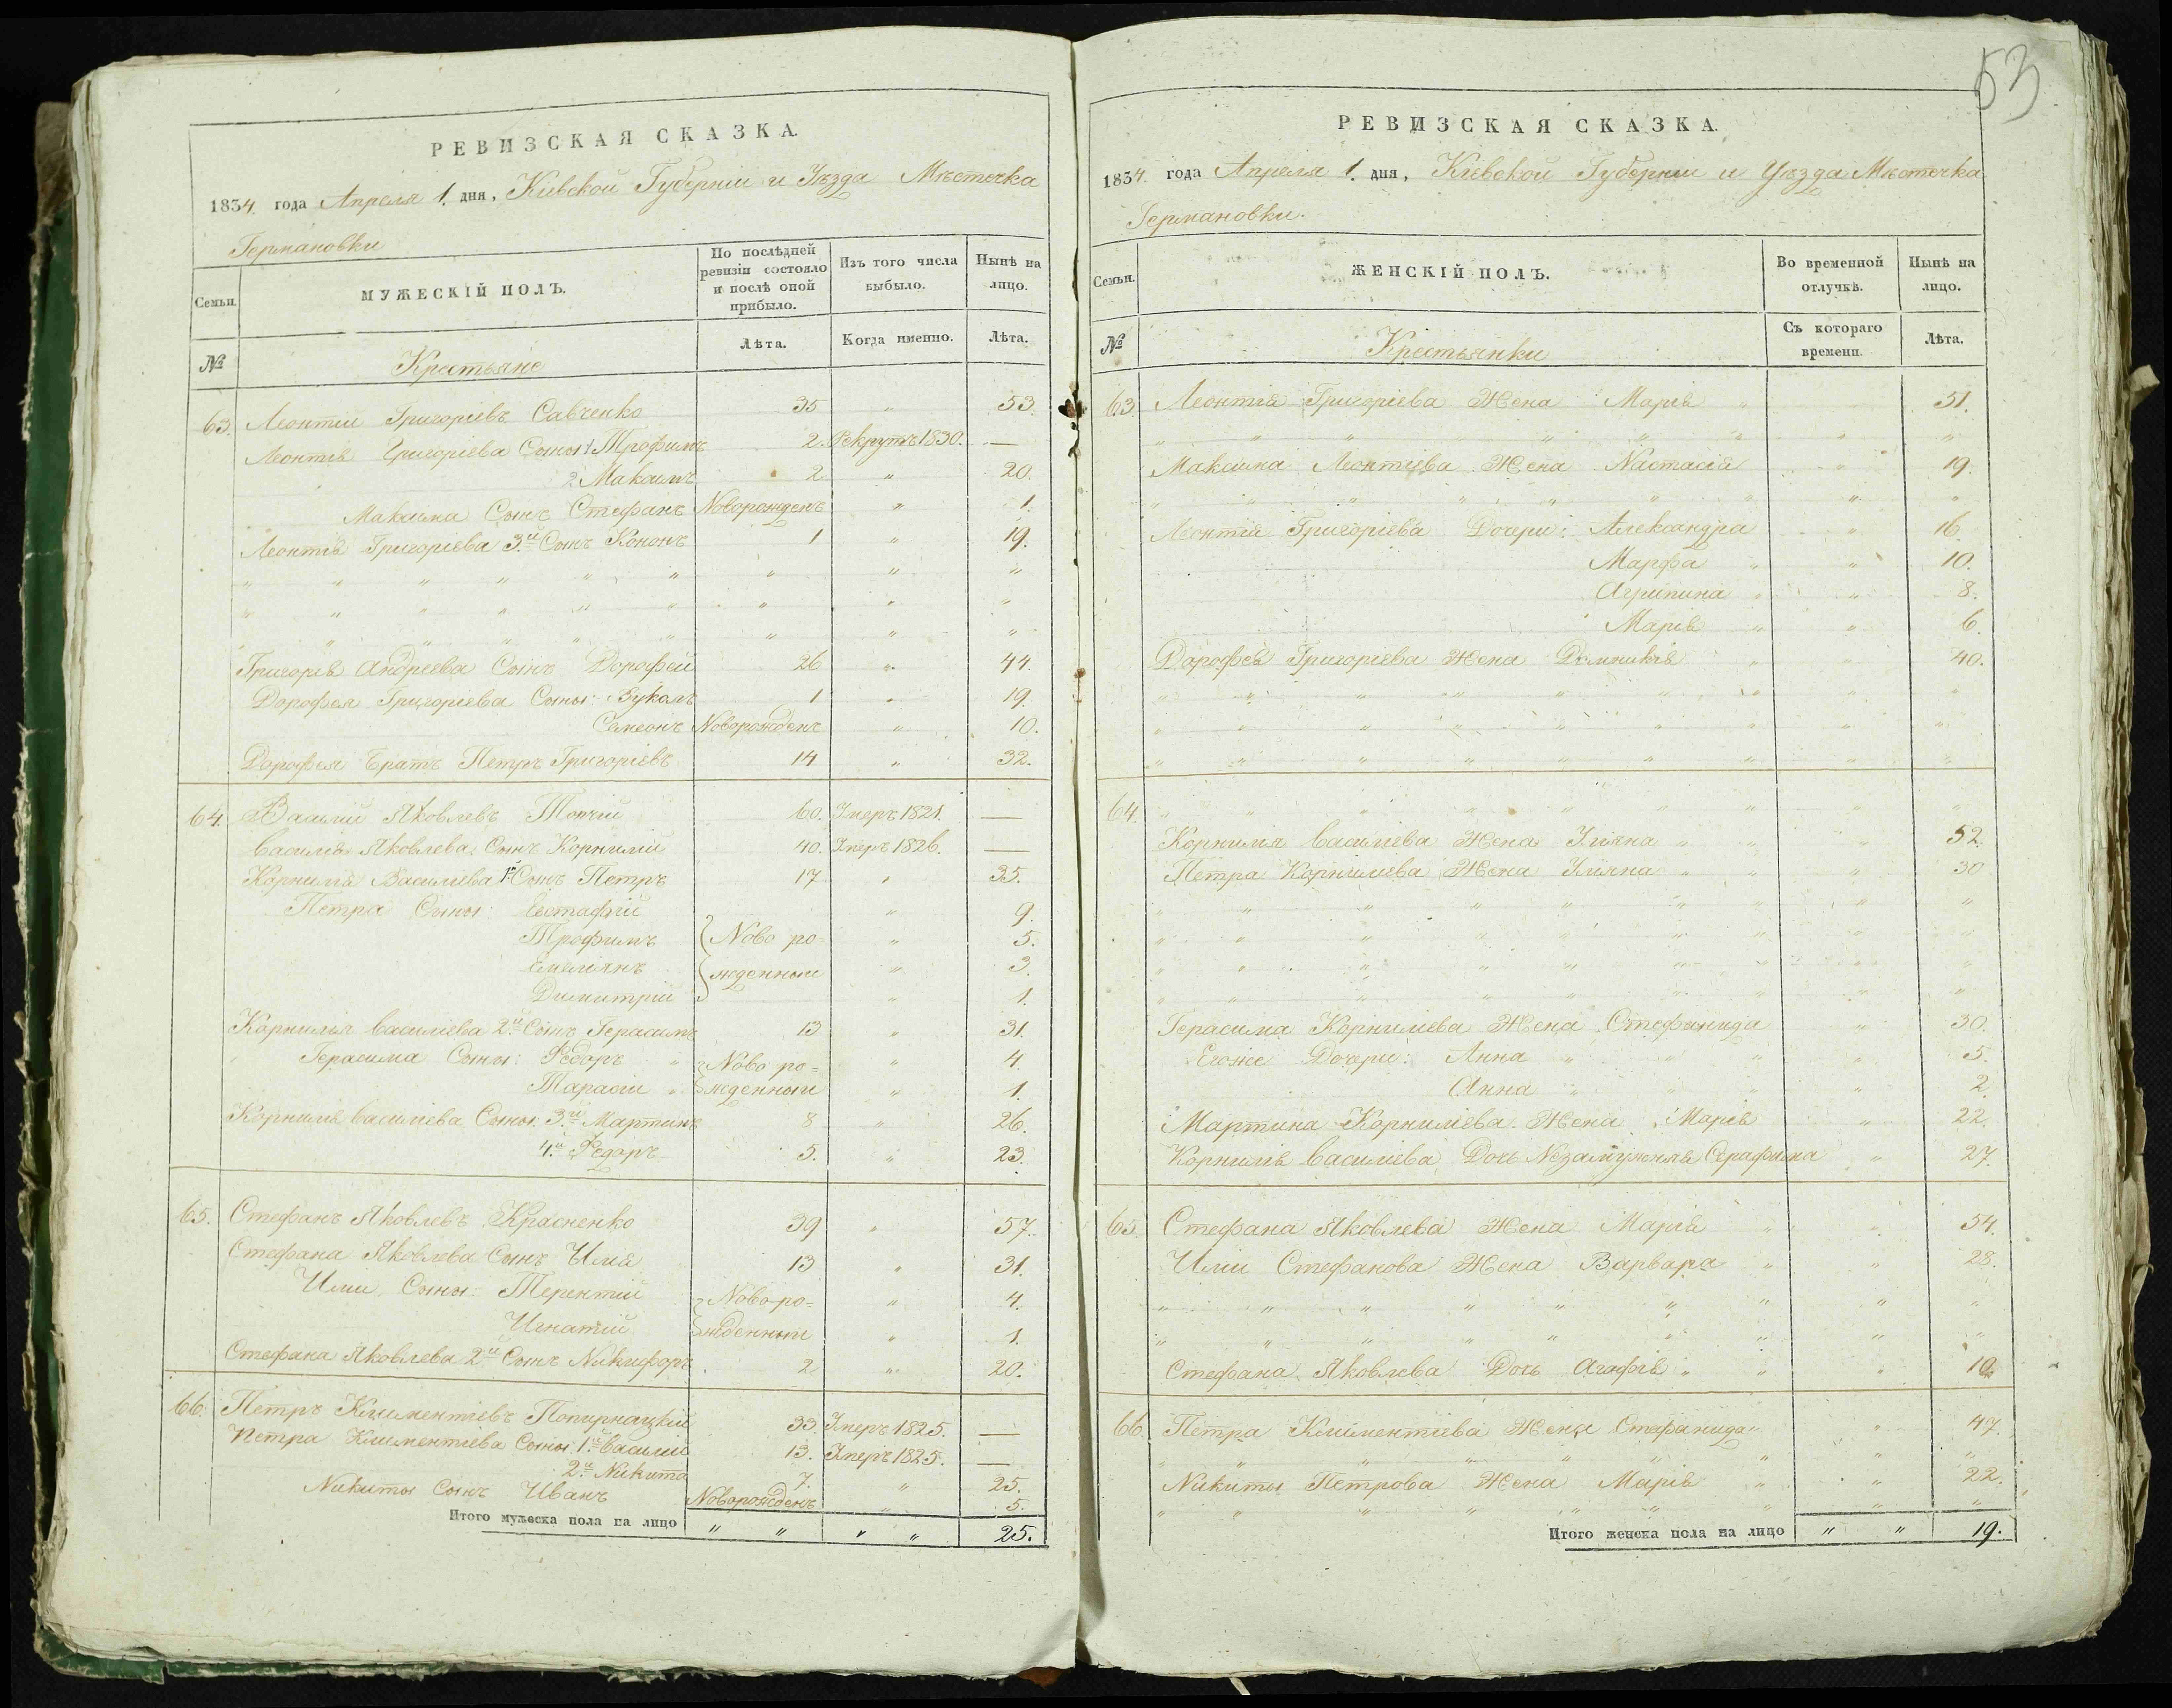 РЕВИЗСКАЯ СКАЗКА.
1834. года Апреля 1. дня, Кіевской Губерніи и Уѣзда Мѣстечка
Германовки
Семьи.
МУЖЕСКІЙ ПОЛЪ.
По послѣдней
ревизіи состояло
и послѣ оной
прибыло.
Изъ того числа
выбыло.
Нынѣ на
лицо.
№
Крестьяне
Лѣта.
Когда именно.
Лѣта.
63. Леонтій Григоріевъ Савченко 35 " 53.
Леонтія Григоріева Сыны: 1 Трофимъ 2. Рекрутъ 1830. —
2 Максимъ 2 " 20.
Максима Сынъ Стефанъ Новорожденъ " 1.
Леонтія Григоріева 3й Сынъ Кононъ 1 " 19.
" " " " " " " " "
" " " " " " " " "
" " " " " " " " "
Григорія Андреева Сынъ Дорофей 26 " 44.
Дорофея Григоріева Сыны: Вуколъ 1 " 19.
Симеонъ Новорожденъ " 10.
Дорофея Братъ Петръ Григоріевъ 14 " 32.
64. Василій Яковлевъ Топчій 60. Умеръ 1821. —
Василія Яковлева Сынъ Корнилій 40. Умеръ 1826. —
Корнилія Василіева 1й Сынъ Петръ 17 " 35.
Петра Сыны: Евстафій " 9.
Трофимъ Ново ро- " 5.
Емеліянъ жденныи " 3.
Димитрій " 1.
Корнилія Василіева 2й Сынъ Герасимъ 13 " 31.
Герасима Сыны: Федоръ " Ново ро= " 4.
Тарасій " жденныи " 1.
Корнилія Василіева Сыны: 3й Мартинъ 8 " 26.
4й Федоръ 5. " 23.
65. Стефанъ Яковлевъ Красненко 39 " 57.
Стефана Яковлева Сынъ Илія 13 " 31.
Иліи Сыны: Терентій Ново ро= " 4.
Игнатій жденныи " 1.
Стефана Яковлева 2й Сынъ Никифоръ 2 " 20.
66. Петръ Климентіевъ 33. Умеръ 1825. —
Петра Климентіева Сыны: 1й Василій 13. Умеръ 1825. —
2й Никита 7. " 25.
Никиты Сынъ Иванъ Новорожденъ " 5.
Итого мужеска пола на лицо " " " " 25.
53
РЕВИЗСКАЯ СКАЗКА.
1834. года Апреля 1. дня, Кіевской Губерніи и Уѣзда Мѣстечка
Германовки.
Семьи.
ЖЕНСКІЙ ПОЛЪ.
Во временной
отлучкѣ.
Нынѣ на
лицо.
№
Крестьянки
Съ котораго
времени.
Лѣта.
63. Леонтія Григоріева Жена Марія " 51.
" " " " " " " " "
Максима Леонтіева Жена Настасія " 19.
" " " " " " " " "
Леонтія Григоріева Дочери: Александра " 16
Марфа " " 10.
Агрипина " " 8.
Марія " " 6.
Дорофея Григоріева Жена Домникія " " 40.
" " " " " " " " "
" " " " " " " " "
" " " " " " " " "
64. " " " " " " " " "
Корнилія Василіева Жена Уліяна " " " 52.
Петра Корниліева Жена Уліяна " " " 30
" " " " " " " " "
" " " " " " " " "
" " " " " " " " "
" " " " " " " " "
Герасима Корниліева Жена Стефанида " 30.
Егоже Дочери: Анна " " " " 5.
Анна " " " " 2
Мартина Корниліева Жена Марія " 22.
Корнилія Василіева Дочь Незамужняя Серафима " 27.
65. Стефана Яковлева Жена Марія " " 54.
Иліи Стефанова Жена Варвара " " 28.
" " " " " " " " "
" " " " " " " " "
Стефана Яковлева Дочь Агафія " " "
66. Петра Климентіева Жена Стефанида " " 47.
" " " " " " " " "
Никиты Петрова Жена Марія " " 22.
" " " " " " " " "
Итого женска пола на лицо " " 19.